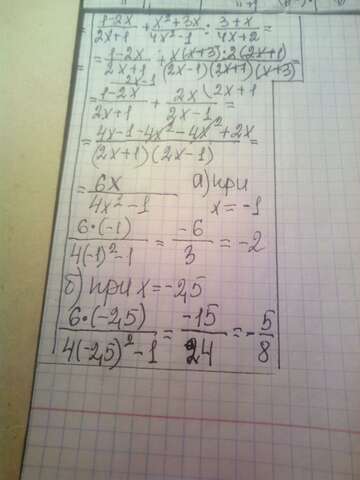 = (1-2x)/(2x+1) + (x²+3x)/(4x²-1) : (3+x)/(4x+2) =
= (1-2x)/(2x+1) + (x(x+3)·2(2x+1))/((2x-1)(2x+1)(x+3)) =
= (1-2x)/(2x+1) \2x-1 + (2x)/(2x-1) \2x+1 =
= (4x-1-4x²-4x²+2x)/((2x+1)(2x-1)) =
= (6x)/(4x²-1) а) при
x = -1
(6·(-1))/(4(-1)²-1) = (-6)/3 = -2
б) при x = -2,5
(6·(-2,5))/(4(-2,5)²-1) = (-15)/24 = -5/8